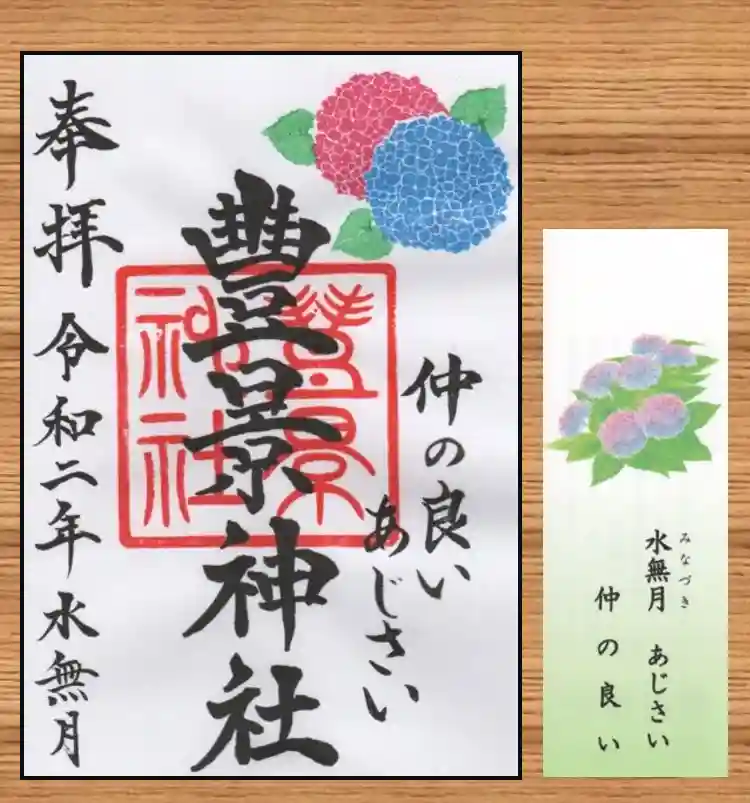 仲の良い
あじさい
豐景神社
豐景
神社
奉拝 令和二年 水無月
水無月 あじさい
みなづき
仲の良い